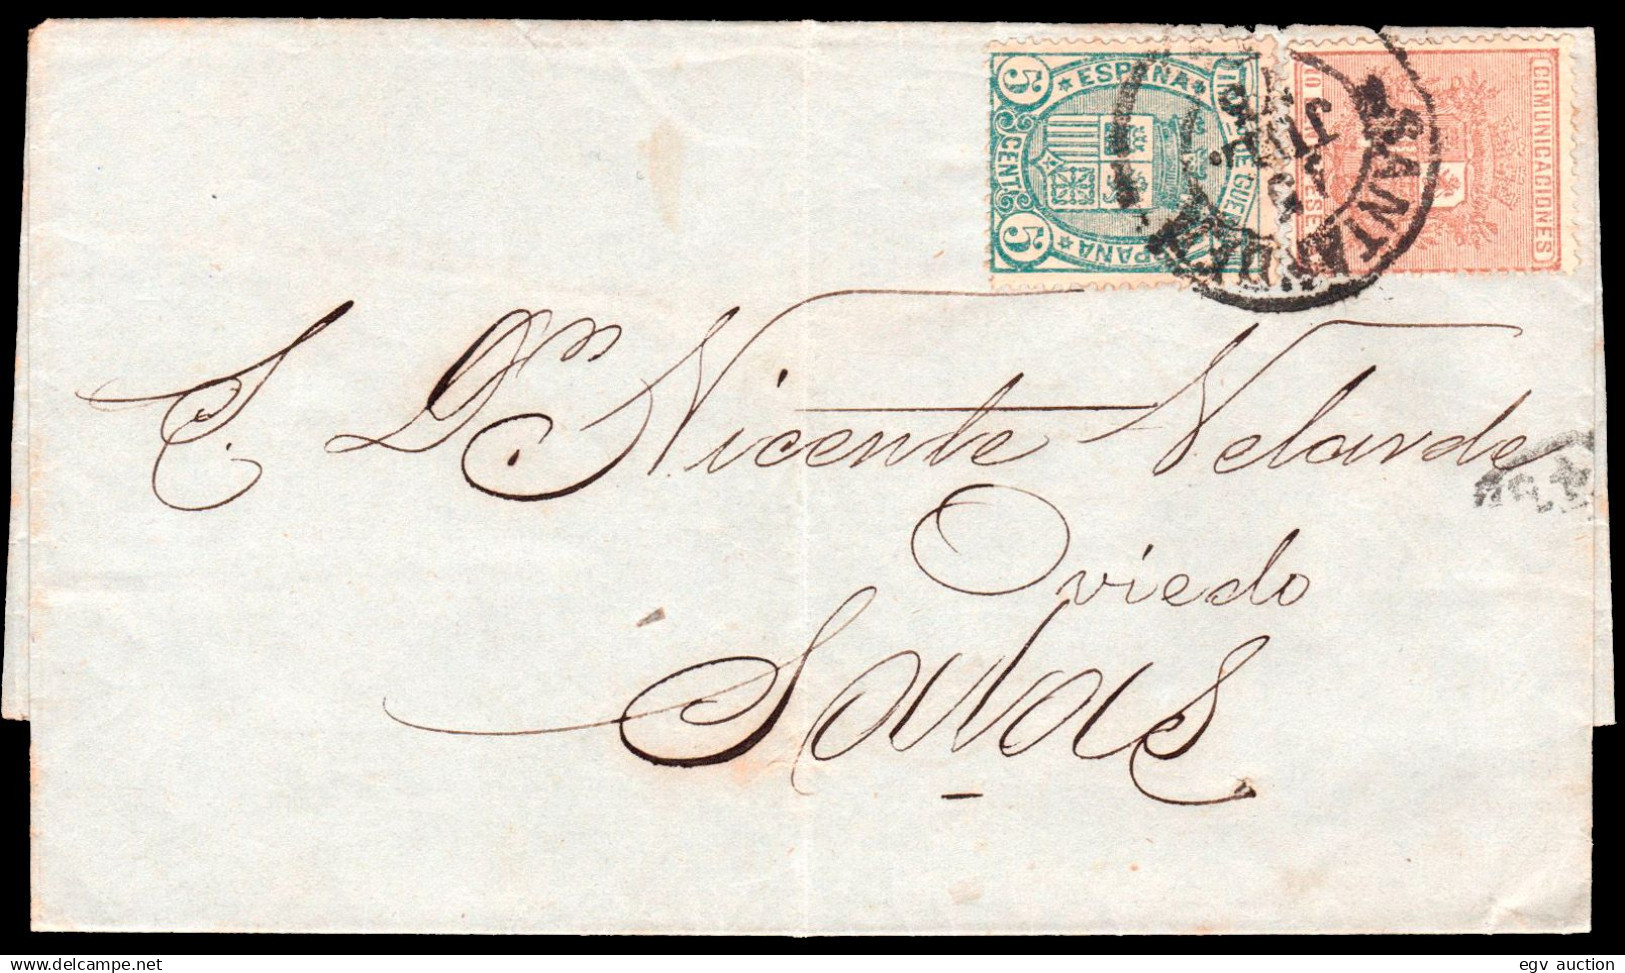 5 ESPAÑA 5
CENT.
DE GUE
ESPAÑA
COMUNICACIONES
SANTANDER
JUL.
S. Dn Vicente Velarde
Oviedo
Salas
delcampe.net
egv auction